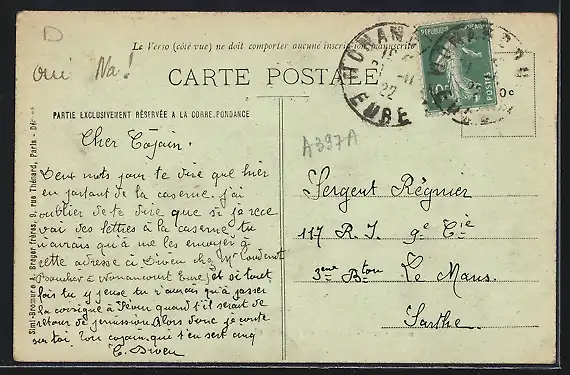 D
Le Verso (côté vue) ne doit comporter aucune inscription manuscrite
oui Na!
CARTE POSTALE
NONANCOURT
EURE
22
RÉPUBLIQUE FRANÇAISE
POSTES
10
10c
PARTIE EXCLUSIVEMENT RÉSERVÉE A LA CORRESPONDANCE
A397A
Cher Cojain.
Deux mots pour te dire que hier
en partant de la caserne j'ai
oublier de te dire que si je rece
vai des lettres à la caserne tu
n'aurais qu'à me les envoyer à
cette adresse à Diveu chez Mr
à Nonancourt Eure, et si toute
fois tu y pense tu n'aurais qu'à passer
la consigne à quand t'il serait de
retour de permission. Alors donc je conte
sur toi. Ton cojain, qui t'en sert cinq
C. Diveu
Sergent Régnier
117 R. I. 9e Cie
3eme Bton Le Mans.
Sarthe.
Simi-Bromure A. Breger frères, 9, rue Thénard, Paris